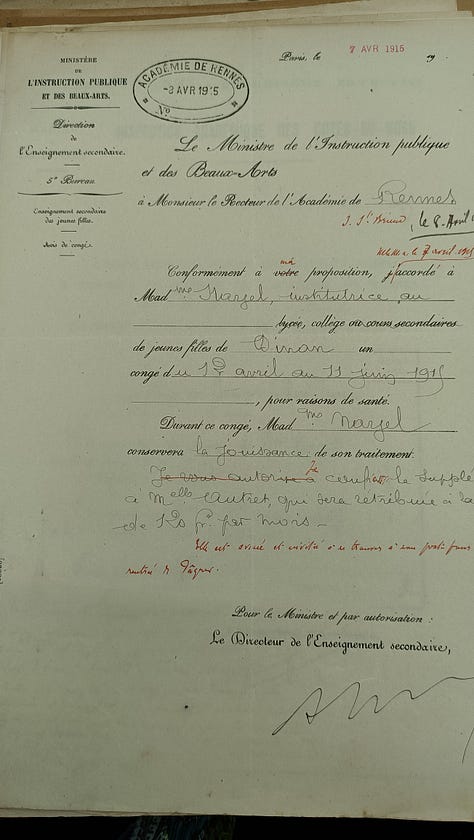 MINISTÈRE
DE
L'INSTRUCTION PUBLIQUE
ET DES BEAUX-ARTS.
Direction
de
l'Enseignement secondaire.
5e Bureau
Enseignement secondaire
des jeunes filles.
Avis de congé.
ACADÉMIE DE RENNES
-8 AVR 1915
No
Paris, le 7 AVR 1915 19
Le Ministre de l'Instruction publique
et des Beaux-Arts
à Monsieur le Recteur de l'Académie de Rennes
le 8 Avril
7 avril 1915
ma
Conformément à votre proposition, j'accorde à
Madme Narjel, institutrice au
lycée, collège ou cours secondaires
de jeunes filles de Dinan un
congé du 12 avril au 11 juin 1915
, pour raisons de santé.
Durant ce congé, Madme Narjel
conservera la jouissance de son traitement.
Je
Je vous autorise à la supplé
à Melle Cautret, qui sera retribuée à la
de 120 fr. par mois.
Elle est avisée et invitée à se trouver à son poste pour
rentrée de Pâques.
Pour le Ministre et par autorisation :
Le Directeur de l'Enseignement secondaire,